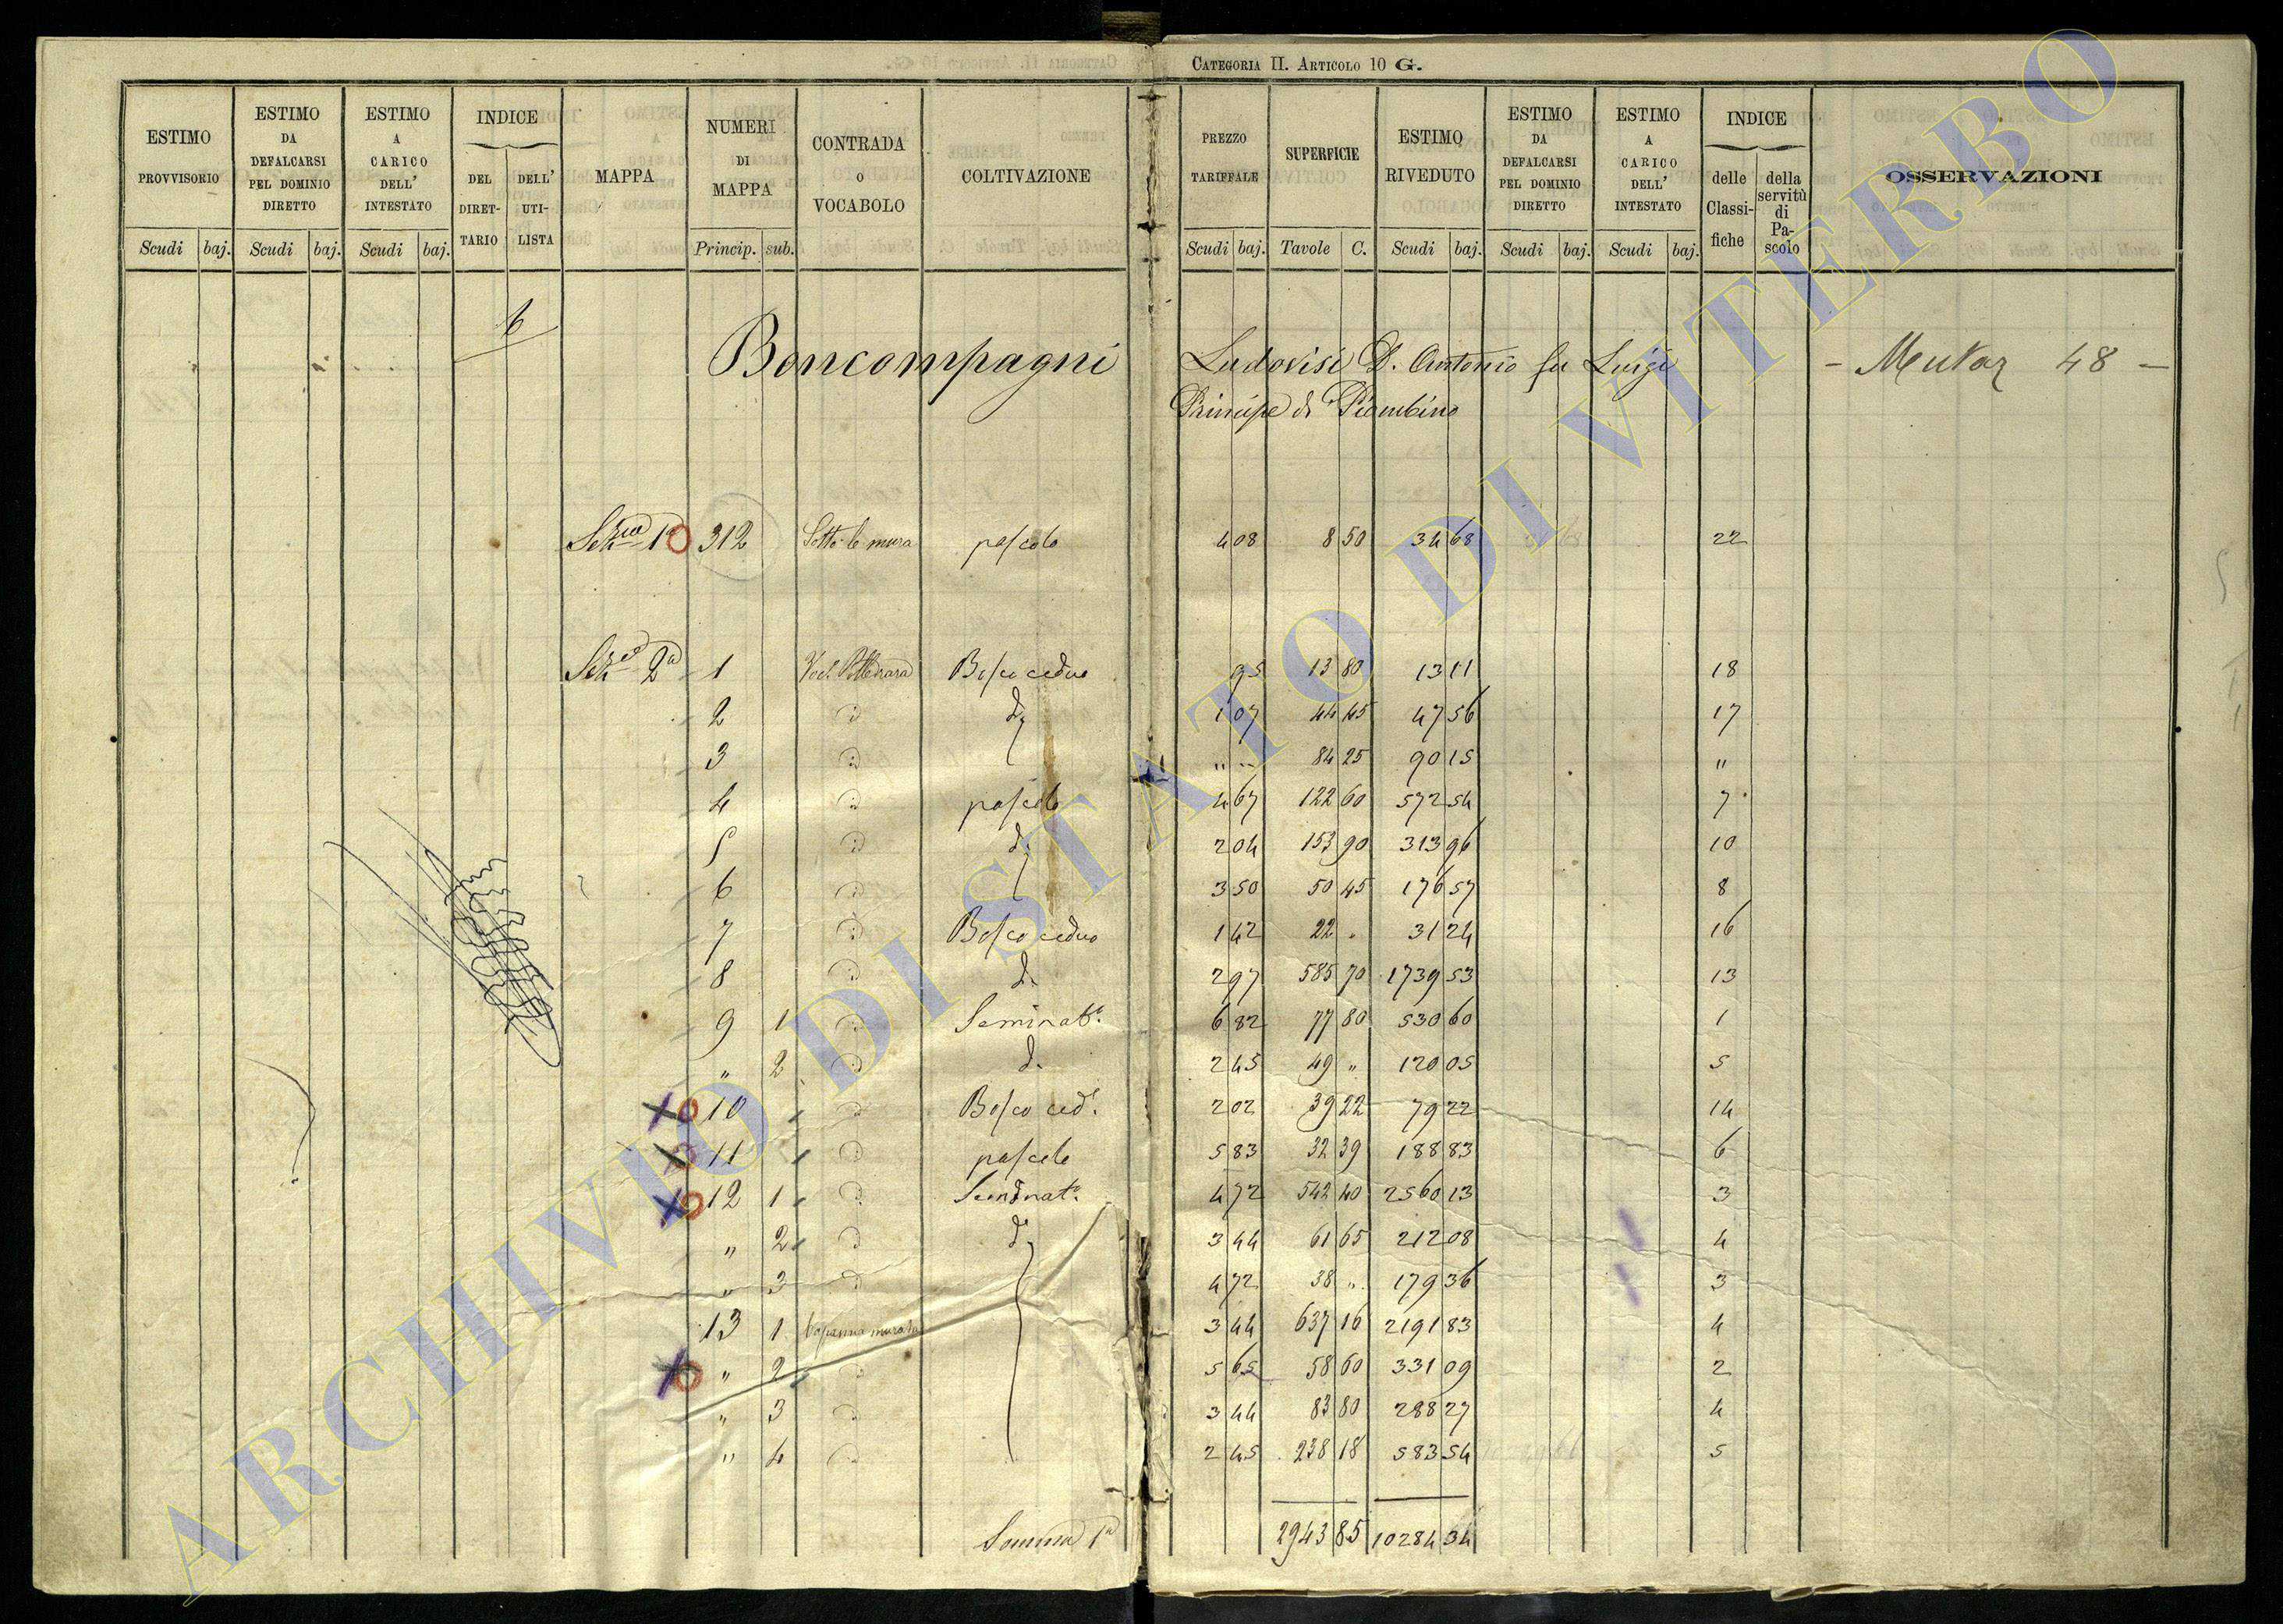 CATEGORIA II. ARTICOLO 10 G.
ESTIMO PROVVISORIO Scudi baj.
ESTIMO DA DEFALCARSI PEL DOMINIO DIRETTO Scudi baj.
ESTIMO A CARICO DELL' INTESTATO Scudi baj.
INDICE DEL DIRETTARIO DELL' UTILISTA
MAPPA
NUMERI DI MAPPA Princip. sub.
CONTRADA O VOCABOLO
COLTIVAZIONE
PREZZO TARIFFALE Scudi baj.
SUPERFICIE Tavole C.
ESTIMO RIVEDUTO Scudi baj.
ESTIMO DA DEFALCARSI PEL DOMINIO DIRETTO Scudi baj.
ESTIMO A CARICO DELL' INTESTATO Scudi baj.
INDICE delle Classifiche della servitù di Pascolo
OSSERVAZIONI
6
Boncompagni Ludovisi D. Antonio fu Luigi - Mutaz 48 -
Principe di Piombino
Sezne 1a 312 Sotto le mura pascolo 4 08 8 50 34 68 22
Sezne 2a 1 Bosco ceduo 95 13 80 13 11 18
2 d 1 07 44 45 47 56 17
3 " " 84 25 90 15 "
4 pascolo 4 67 122 60 572 54 7
5 d 2 04 153 90 313 96 10
6 3 50 50 45 176 57 8
7 Bosco ceduo 1 42 22 . 31 24 16
8 d. 2 97 585 70 1739 53 13
9 1 Seminato. 6 82 77 80 530 60 1
" 2 d. 2 45 49 " 120 05 5
10 Bosco ced. 2 02 39 22 79 22 14
11 pascolo 5 83 32 39 188 83 6
12 1 Seminato. 4 72 542 40 2560 13 3
" 2 d 3 44 61 65 212 08 4
" 3 4 72 38 " 179 36 3
13 1 Capanna murata 3 44 637 16 2191 83 4
" 2 5 65 58 60 331 09 2
" 3 3 44 83 80 288 27 4
" 4 2 45 238 18 583 54 5
Somma 1a 2943 85 10284 34
ARCHIVIO DI STATO DI VITERBO